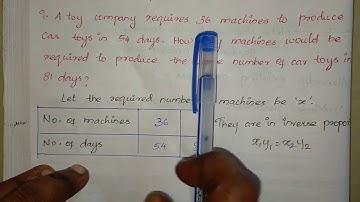 9. A toy company requires 36 machines to produce
car toys in 54 days. How machines would be
required to produce the number of car toys in
81 days?
Let the required number machines be 'x'.
No. of machines 36 They are in inverse propor
No. of days 54 x₁y₁ = x₂y₂